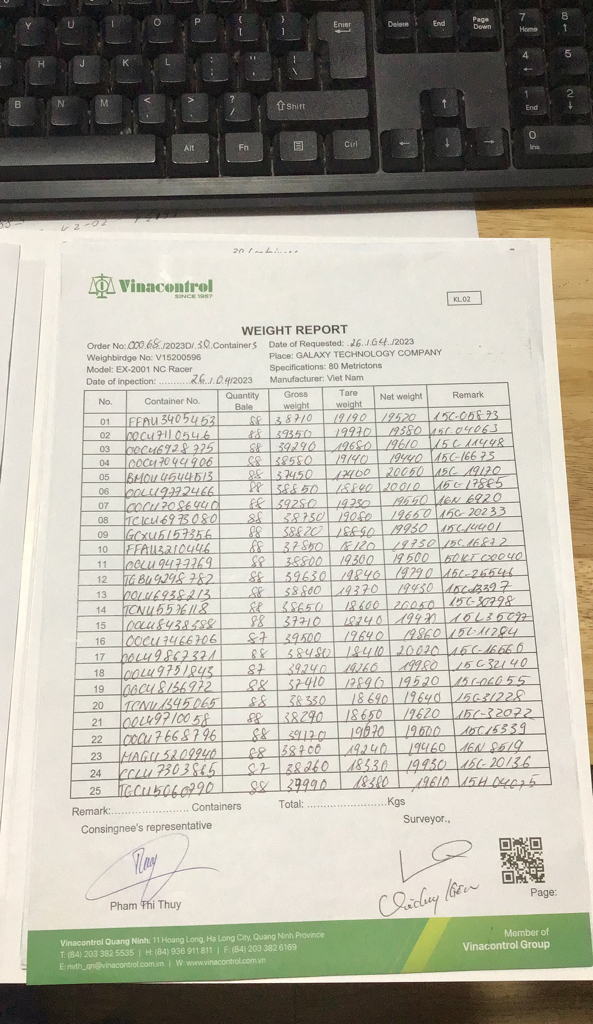 Y U I O P { [ } ] Enter Delete End Page Down 7 Home 8 ↑
H J K L : ; " ' | \ 4 ← 5
B N M < , > . ? / ⇧Shift ↑ 1 End 2 ↓
Alt Fn Ctrl ← ↓ → 0 Ins
Vinacontrol
SINCE 1957
KL.02
WEIGHT REPORT
Order No: 00068/2023D/30 Containers Date of Requested: 26/04/2023
Weighbirdge No: V15200596 Place: GALAXY TECHNOLOGY COMPANY
Model: EX-2001 NC Racer Specifications: 80 Metrictons
Date of inpection: ..........26/04/2023 Manufacturer: Viet Nam
No. Container No. Quantity Bale Gross weight Tare weight Net weight Remark
01 FFAU3405453 88 38710 19190 19520 15C-05873
02 OOCU7110546 88 39350 19970 19380 15C-04063
03 OOCU6928775 88 39290 19680 19610 15C 11448
04 OOCU7044906 88 38580 19140 19440 15C-16673
05 BMOU4544513 88 37450 17400 20050 15C 19170
06 OOLU9772466 88 38850 18840 20010 15C-17885
07 OOCU7086440 88 39280 19730 19550 16N 6920
08 TCKU6973080 88 38730 19080 19650 15C-20233
09 GCXU5157356 88 38820 18890 19930 15C14401
10 FFAU3210446 88 37850 18120 19730 15C16872
11 OOLU9477769 88 38800 19300 19500 50KT 00040
12 TGBU9298782 88 39630 19840 19790 15C-26546
13 OOLU6938213 88 38800 19370 19430 15C13397
14 TCNU5576118 88 38650 18600 20050 15C-30798
15 OOLU8438588 88 37710 18240 19470 15C35097
16 OOCU7466706 87 39500 19640 19860 15C-11284
17 OOLU9867371 88 38480 18410 20070 15C-16660
18 OOLU9751843 87 39240 19260 19980 15C-32140
19 OOCU8156972 88 37410 17890 19520 15C-06055
20 TCNU1345065 88 38330 18690 19640 15C-31228
21 OOLU9710058 88 38290 18650 19620 15C-32072
22 OOCU7668796 88 39170 19670 19500 15C15339
23 MAGU5209940 88 38700 19240 19460 16N 8519
24 CCLU7303865 87 38260 18330 19930 15C-20136
25 TGCU5060790 88 37990 18380 19610 15H 04075
Remark:.................. Containers Total: ........................Kgs
Consingnee's representative Surveyor.,
Pham Thi Thuy
Page:
Vinacontrol Quang Ninh: 11 Hoang Long, Ha Long City, Quang Ninh Province
T: (84) 203 382 5535 | H: (84) 936 911 811 | F: (84) 203 382 6169
E: mith_qn@vinacontrol.com.vn | W: www.vinacontrol.com.vn
Member of
Vinacontrol Group